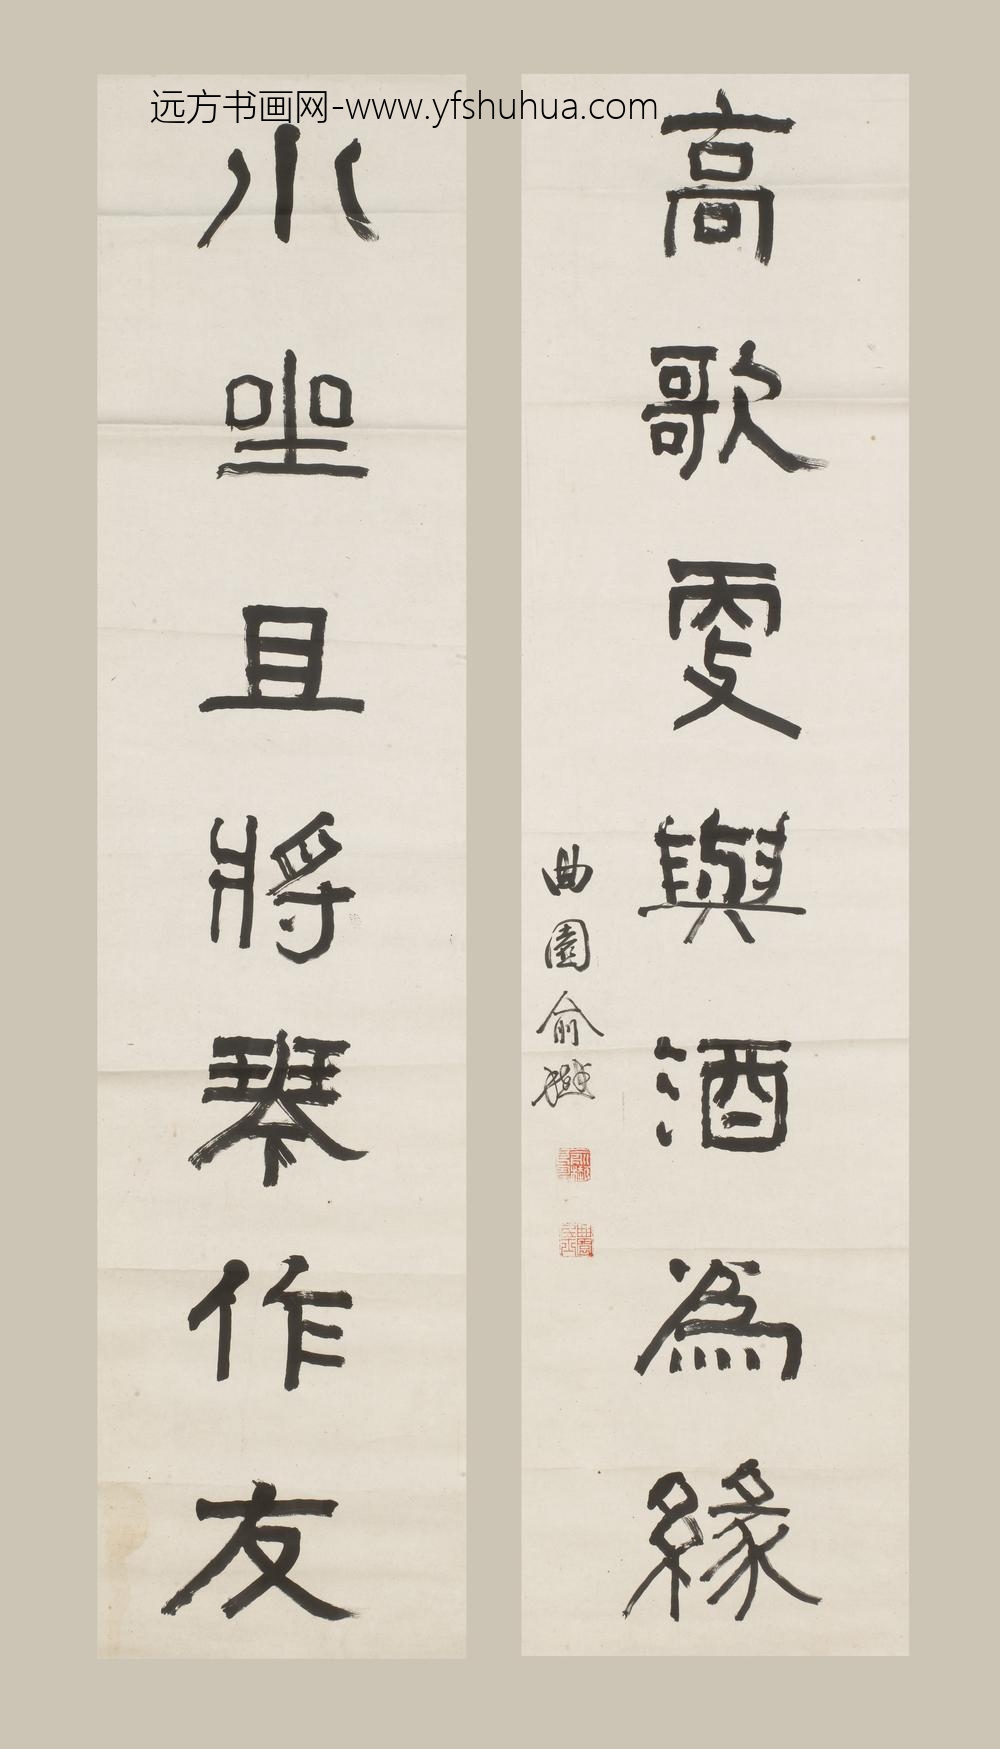 远方书画网-www.yfshuhua.com
高歌更與酒為緣
曲園俞樾
小坐且將琴作友